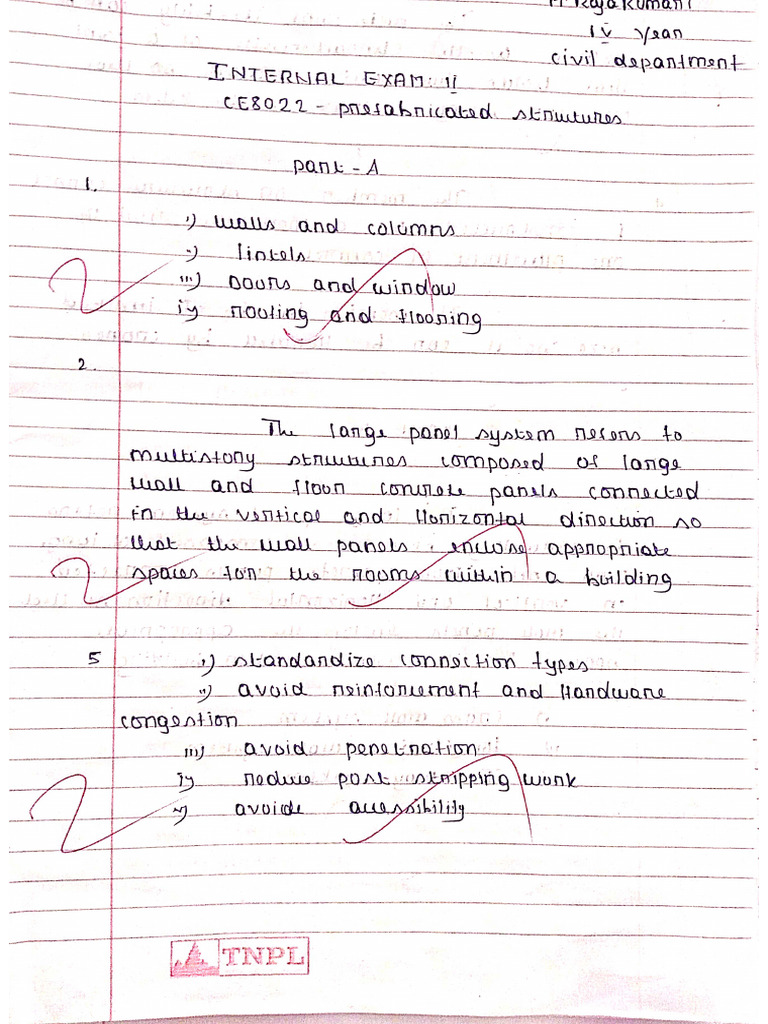 Rajakumari
IV year
civil department
INTERNAL EXAM: II
CE8022 - prefabricated structures
part - A
1.
i) walls and columns
ii) lintels
iii) Doors and window
iv) roofing and flooring
2.
The large panel system refers to
multistory structures composed of large
wall and floor concrete panels connected
in the vertical and Horizontal direction so
that the wall panels enclose appropriate
spaces for the rooms within a building
5
i) standardize connection types
ii) avoid reinforcement and Hardware
congestion
iii) avoid penetration
iv) reduce post stripping work
v) avoide accessibility
TNPL